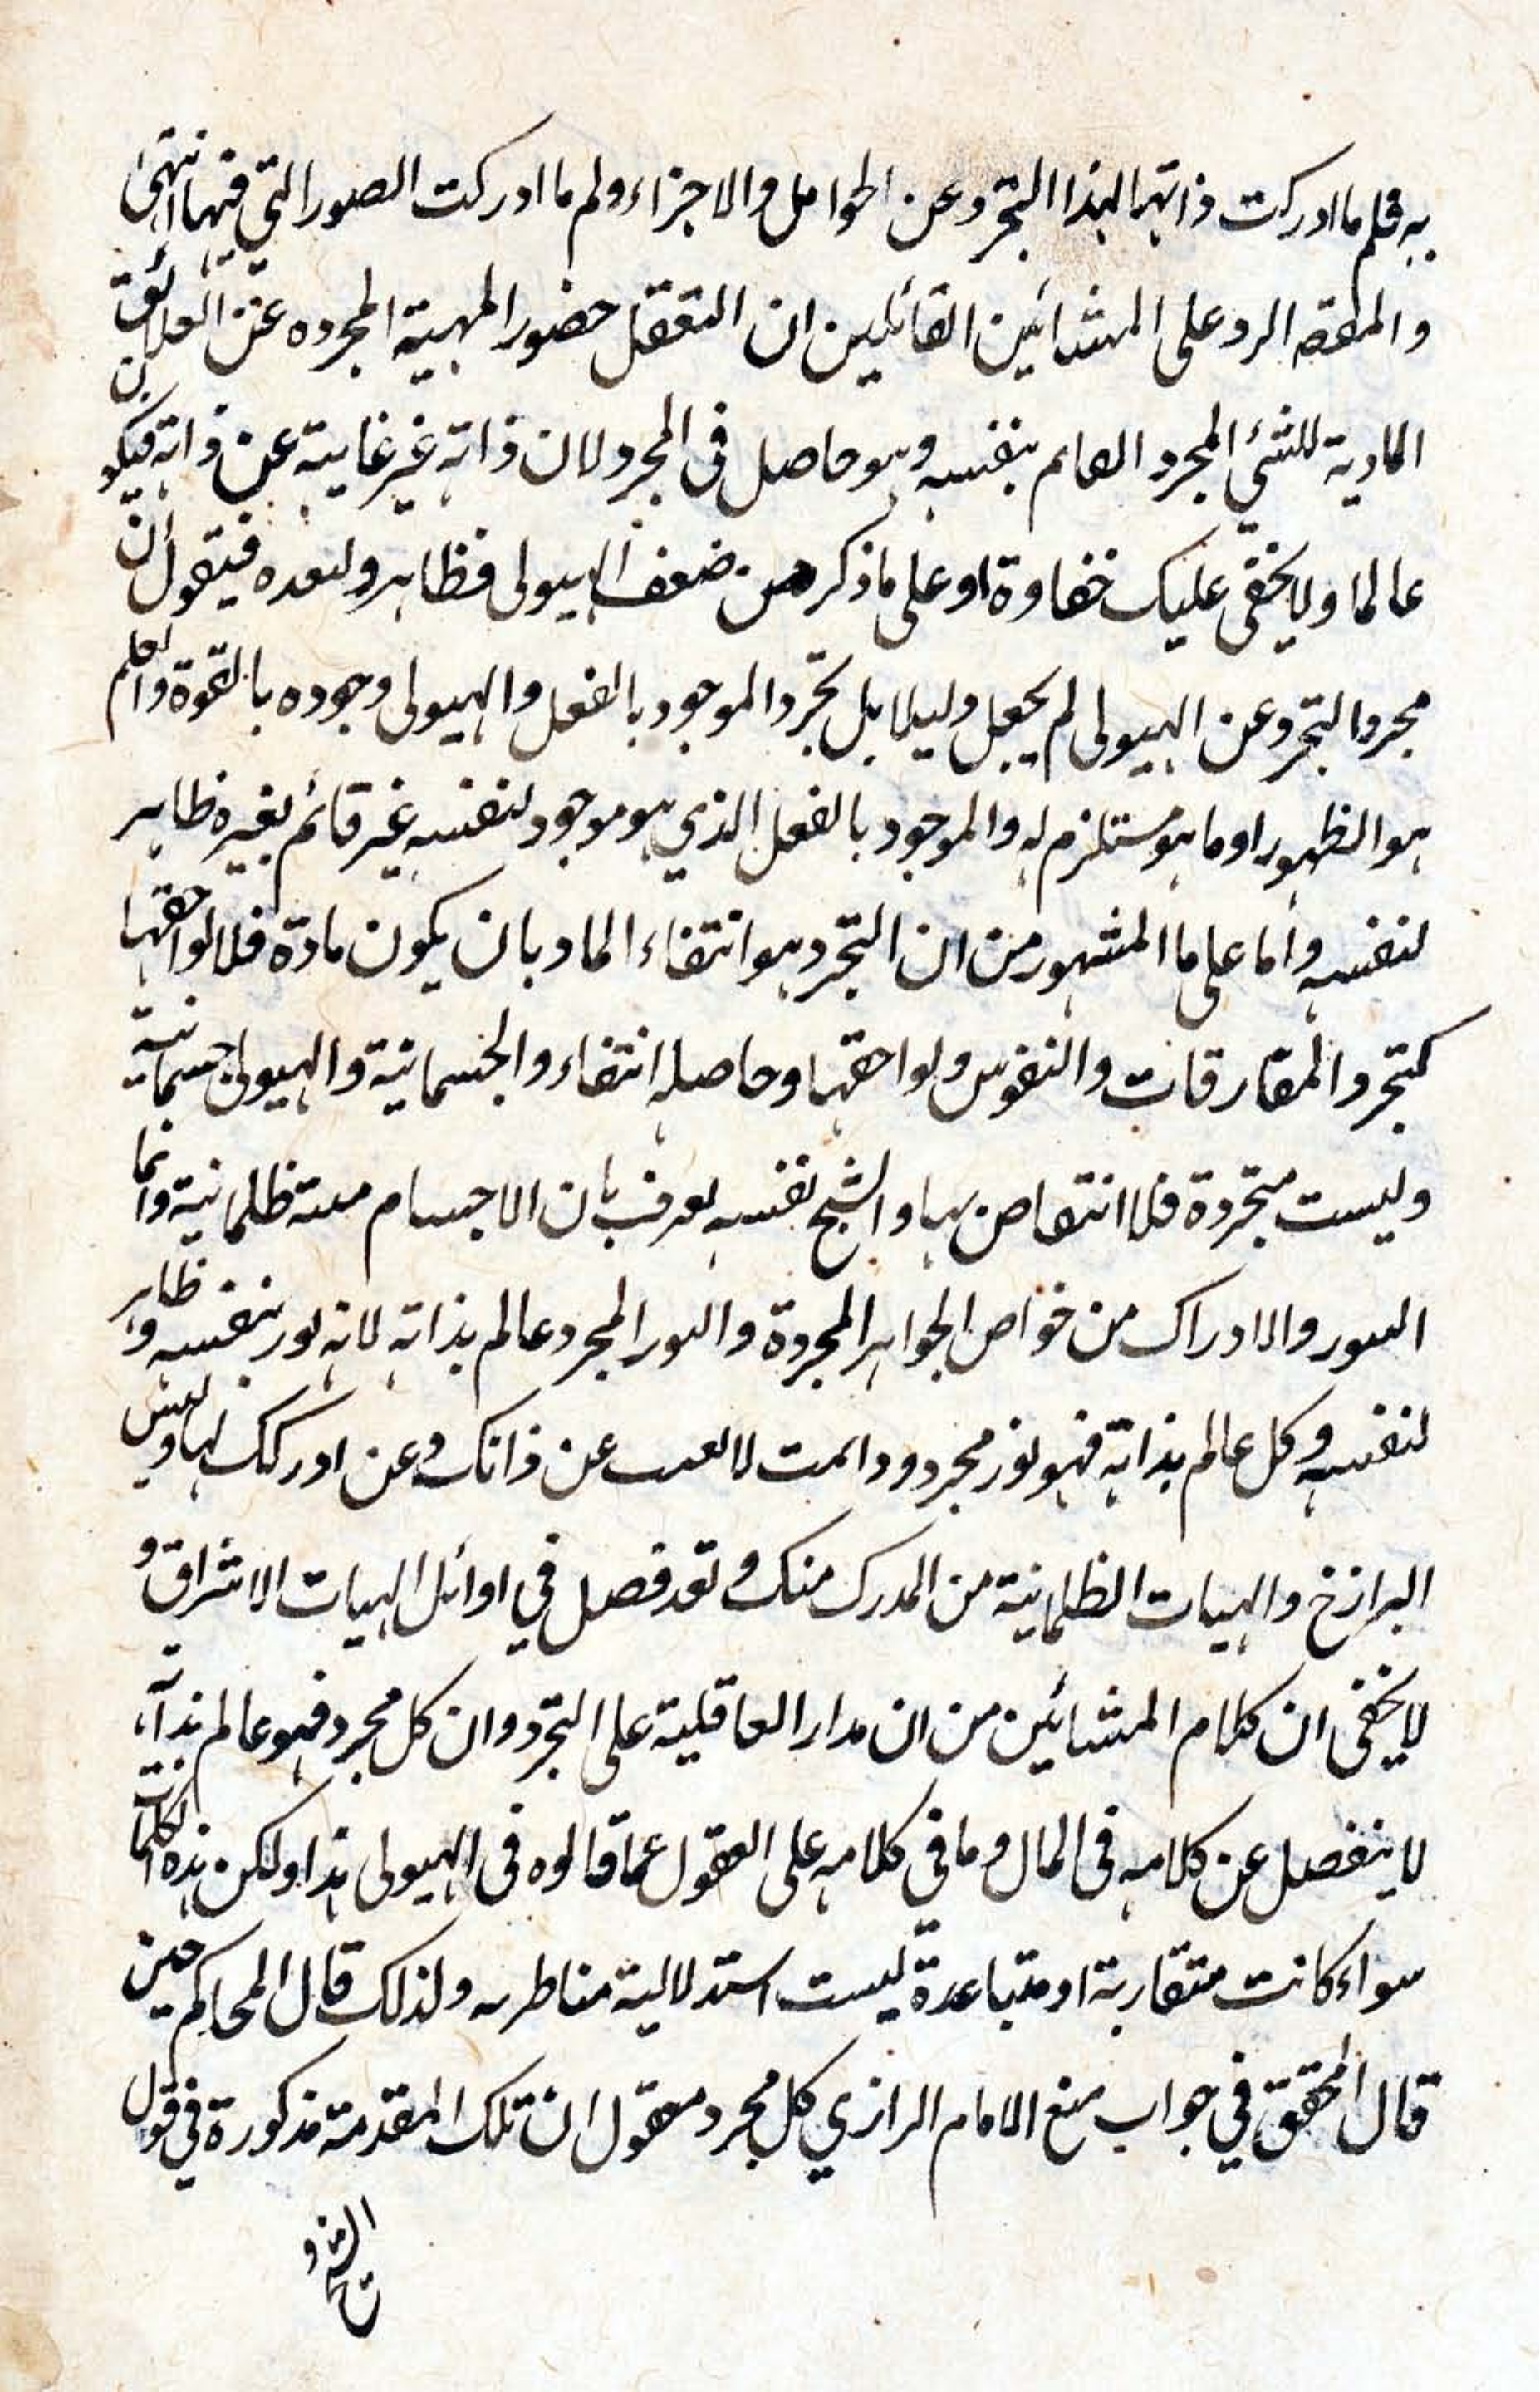 به فلم ما ادركت ذاتها لهذا التجرد عن الحوامل والاجزاء ولم ما ادركت الصور التي فيها انتهى
والمقصه الرد على المشائين القائلين ان التعقل حضور المهية المجرده عن العلائق
المادية للشئ المجرد القائم بنفسه وهو حاصل فى المجرد لان ذاته غير غايبة عن ذاته فيكون
عالما ولا يخفى عليك خفاوة او على ما ذكر من ضعف الهيولى فظاهر ولبعده فيقول ان
مجرد التجرد عن الهيولى لم يجعل دليلا بل تجرد الموجود بالفعل والهيولى وجوده بالقوة والعلم
هو الظهور او ما هو مستلزم له والموجود بالفعل الذي هو موجود لنفسه غير قائم بغيره ظاهر
لنفسه واما على ما المشهور من ان التجرد هو انتفاء الماد بان يكون مادة فلا لواحقها
كتجرد المفارقات والنفوس ولواحقها وحاصله انتفاء والجسمانية والهيولى جسمانية
وليست متجردة فلا انتقاض بها والشيخ نفسه يعرف بان الاجسام ميتة ظلمانية وانما
النور والادراك من خواص الجواهر المجردة والنور المجرد عالم بذاته لانه نور بنفسه وظاهر
لنفسه وكل عالم بذاته فهو نور مجرد ود انت لا تغيب عن ذاتك وعن ادركك لها وليس
البرازخ والهيات الظلمانية من المدرك منك وقد فصل في اوائل الهيات الاشراق و
لا يخفى ان كلام المشائين من ان مدار العاقلية على التجرد وان كل مجرد فهو عالم بذاته
لا ينفصل عن كلامه فى المال وما في كلامه على العقول عما قالوه فى الهيولى هذا ولكن هذه الكلمات
سواء كانت متقاربة او متباعدة ليست استدلالية مناظريه ولذلك قال المحاكم حين
قال المحقق في جواب منع الامام الرازي كل مجرد معقول ان تلك المقدمة مذكورة في قول